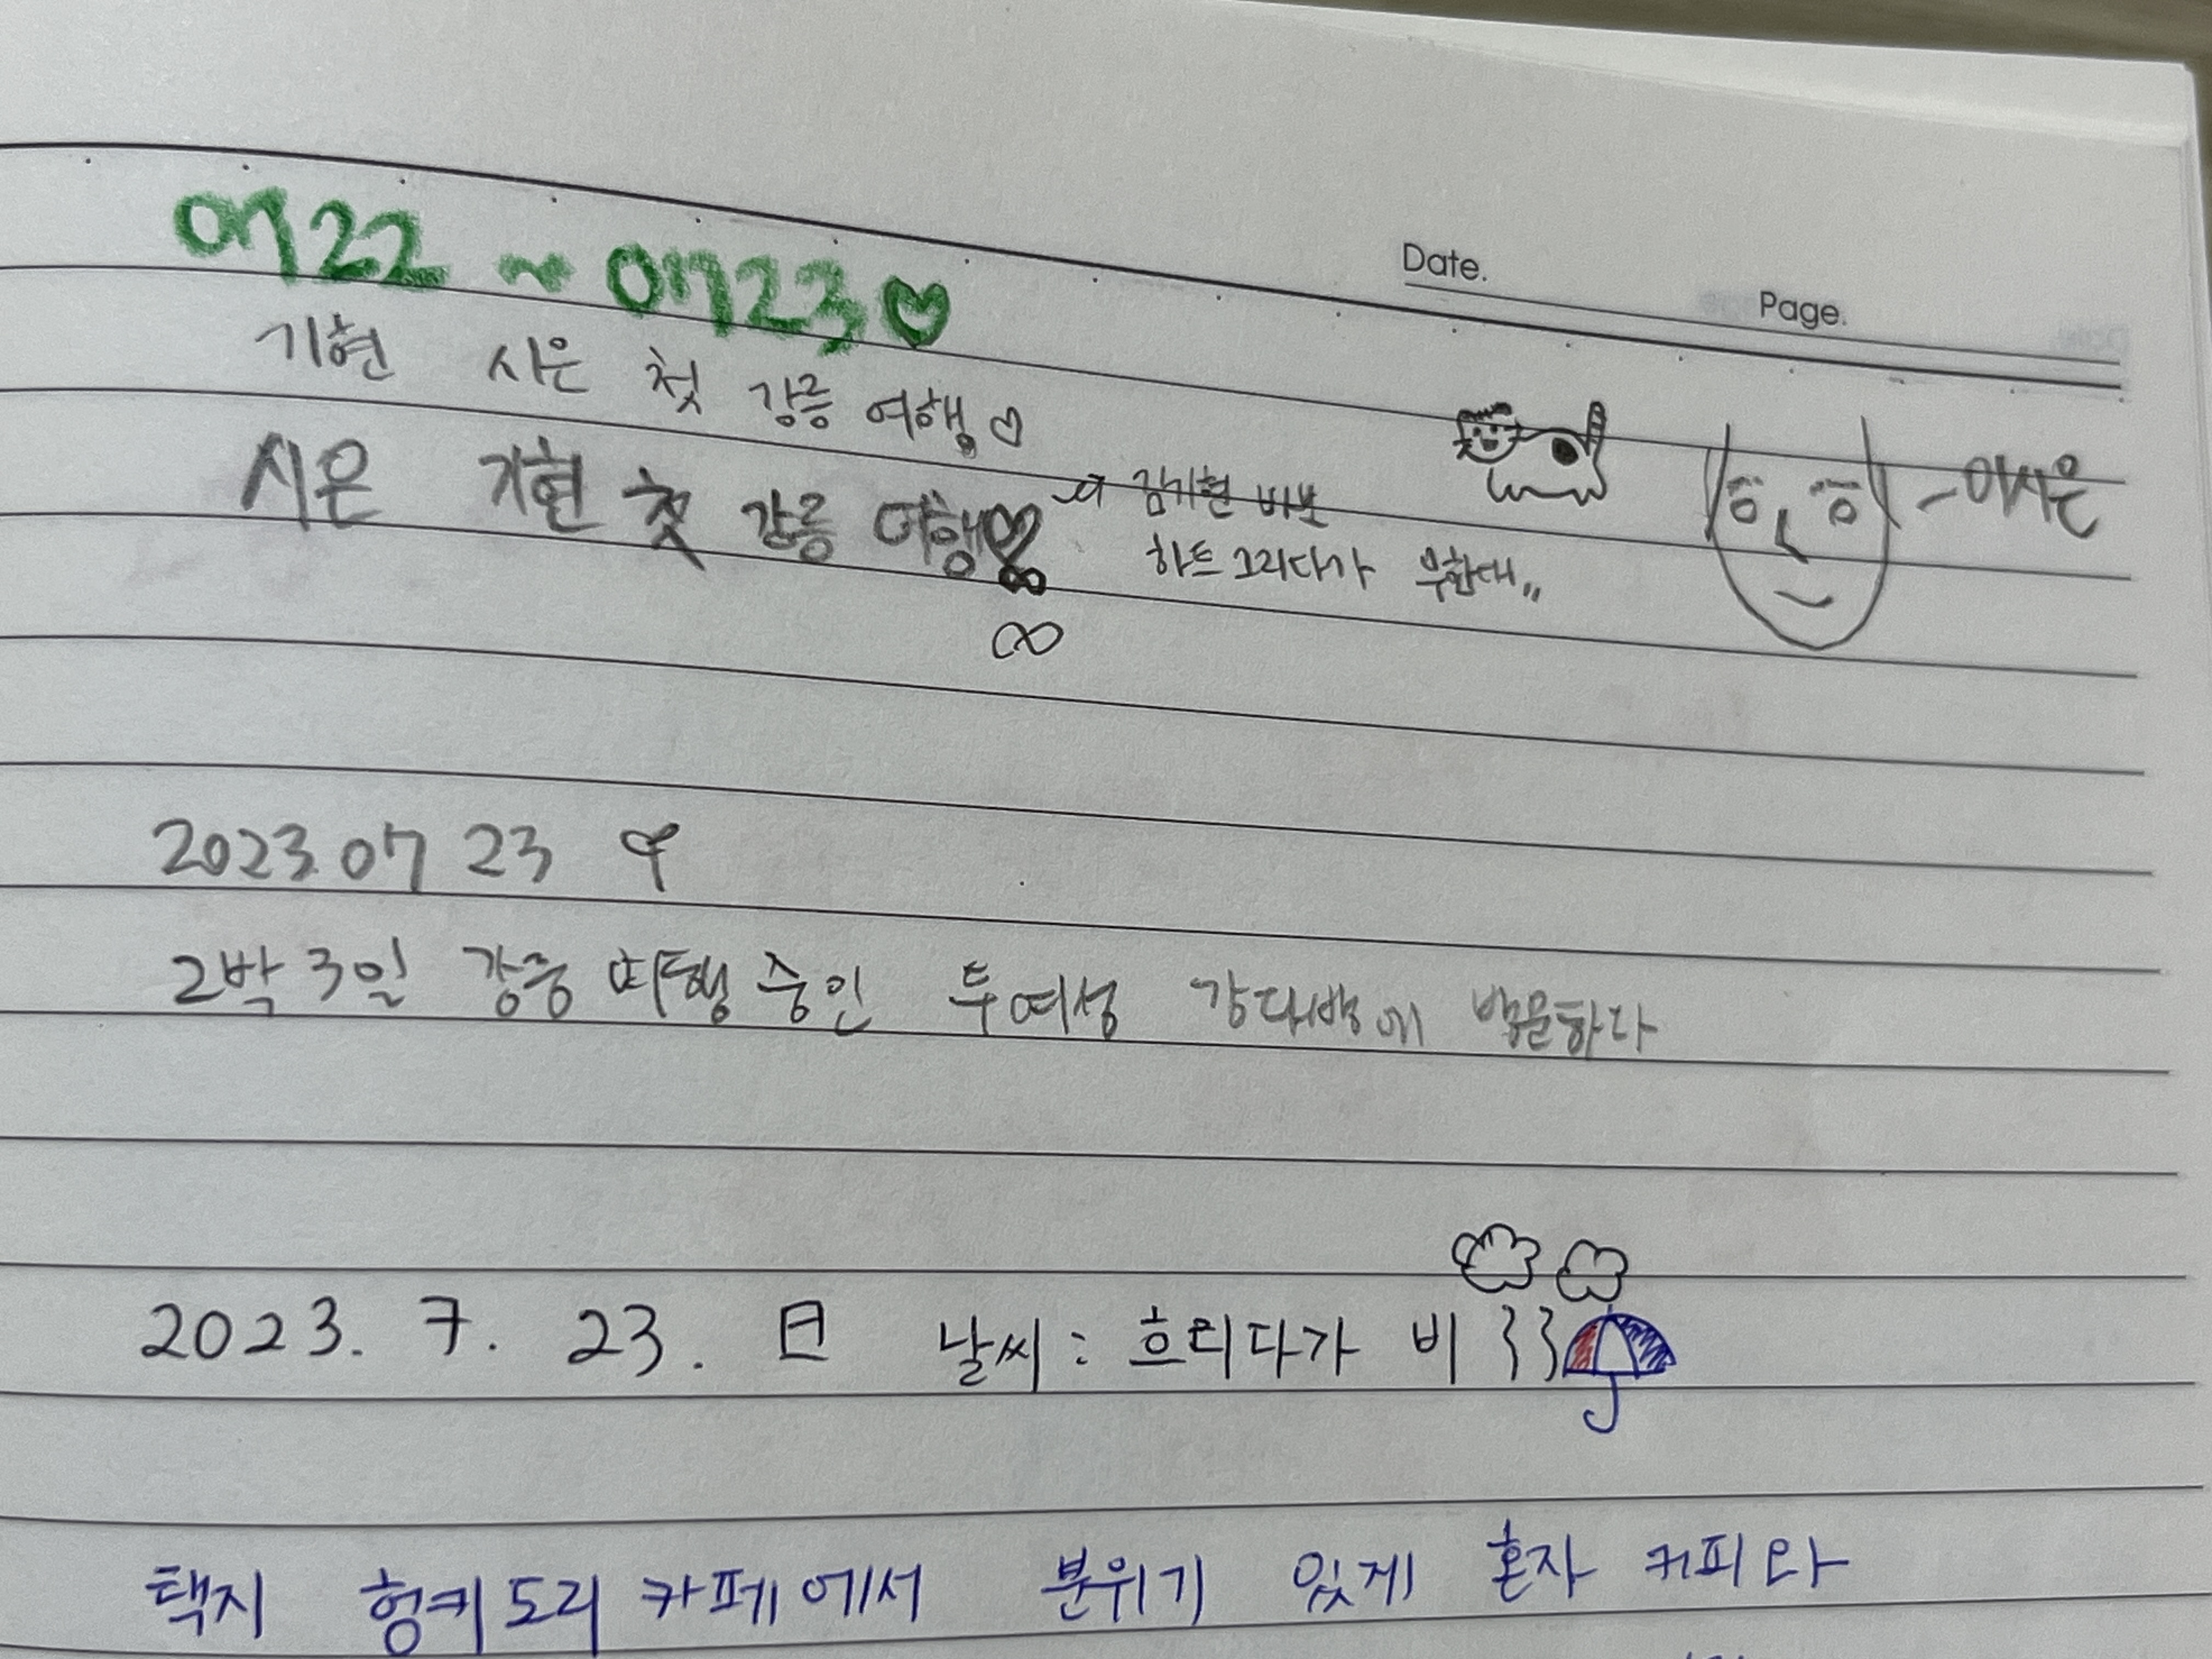 Date.
Page.
0722 ~ 0723♡
기현 시은 첫 강릉 여행♡
시은 기현 첫 강릉 여행♡∞
김기현 바보
하트 그리다가 무한대,,
∞
이시은
2023.07 23
2박 3일 강릉 여행 중인 두 여성 강다방에 방문하다
2023. 7. 23. 日 날씨 : 흐리다가 비
택지 헝키도리 카페에서 분위기 있게 혼자 커피와